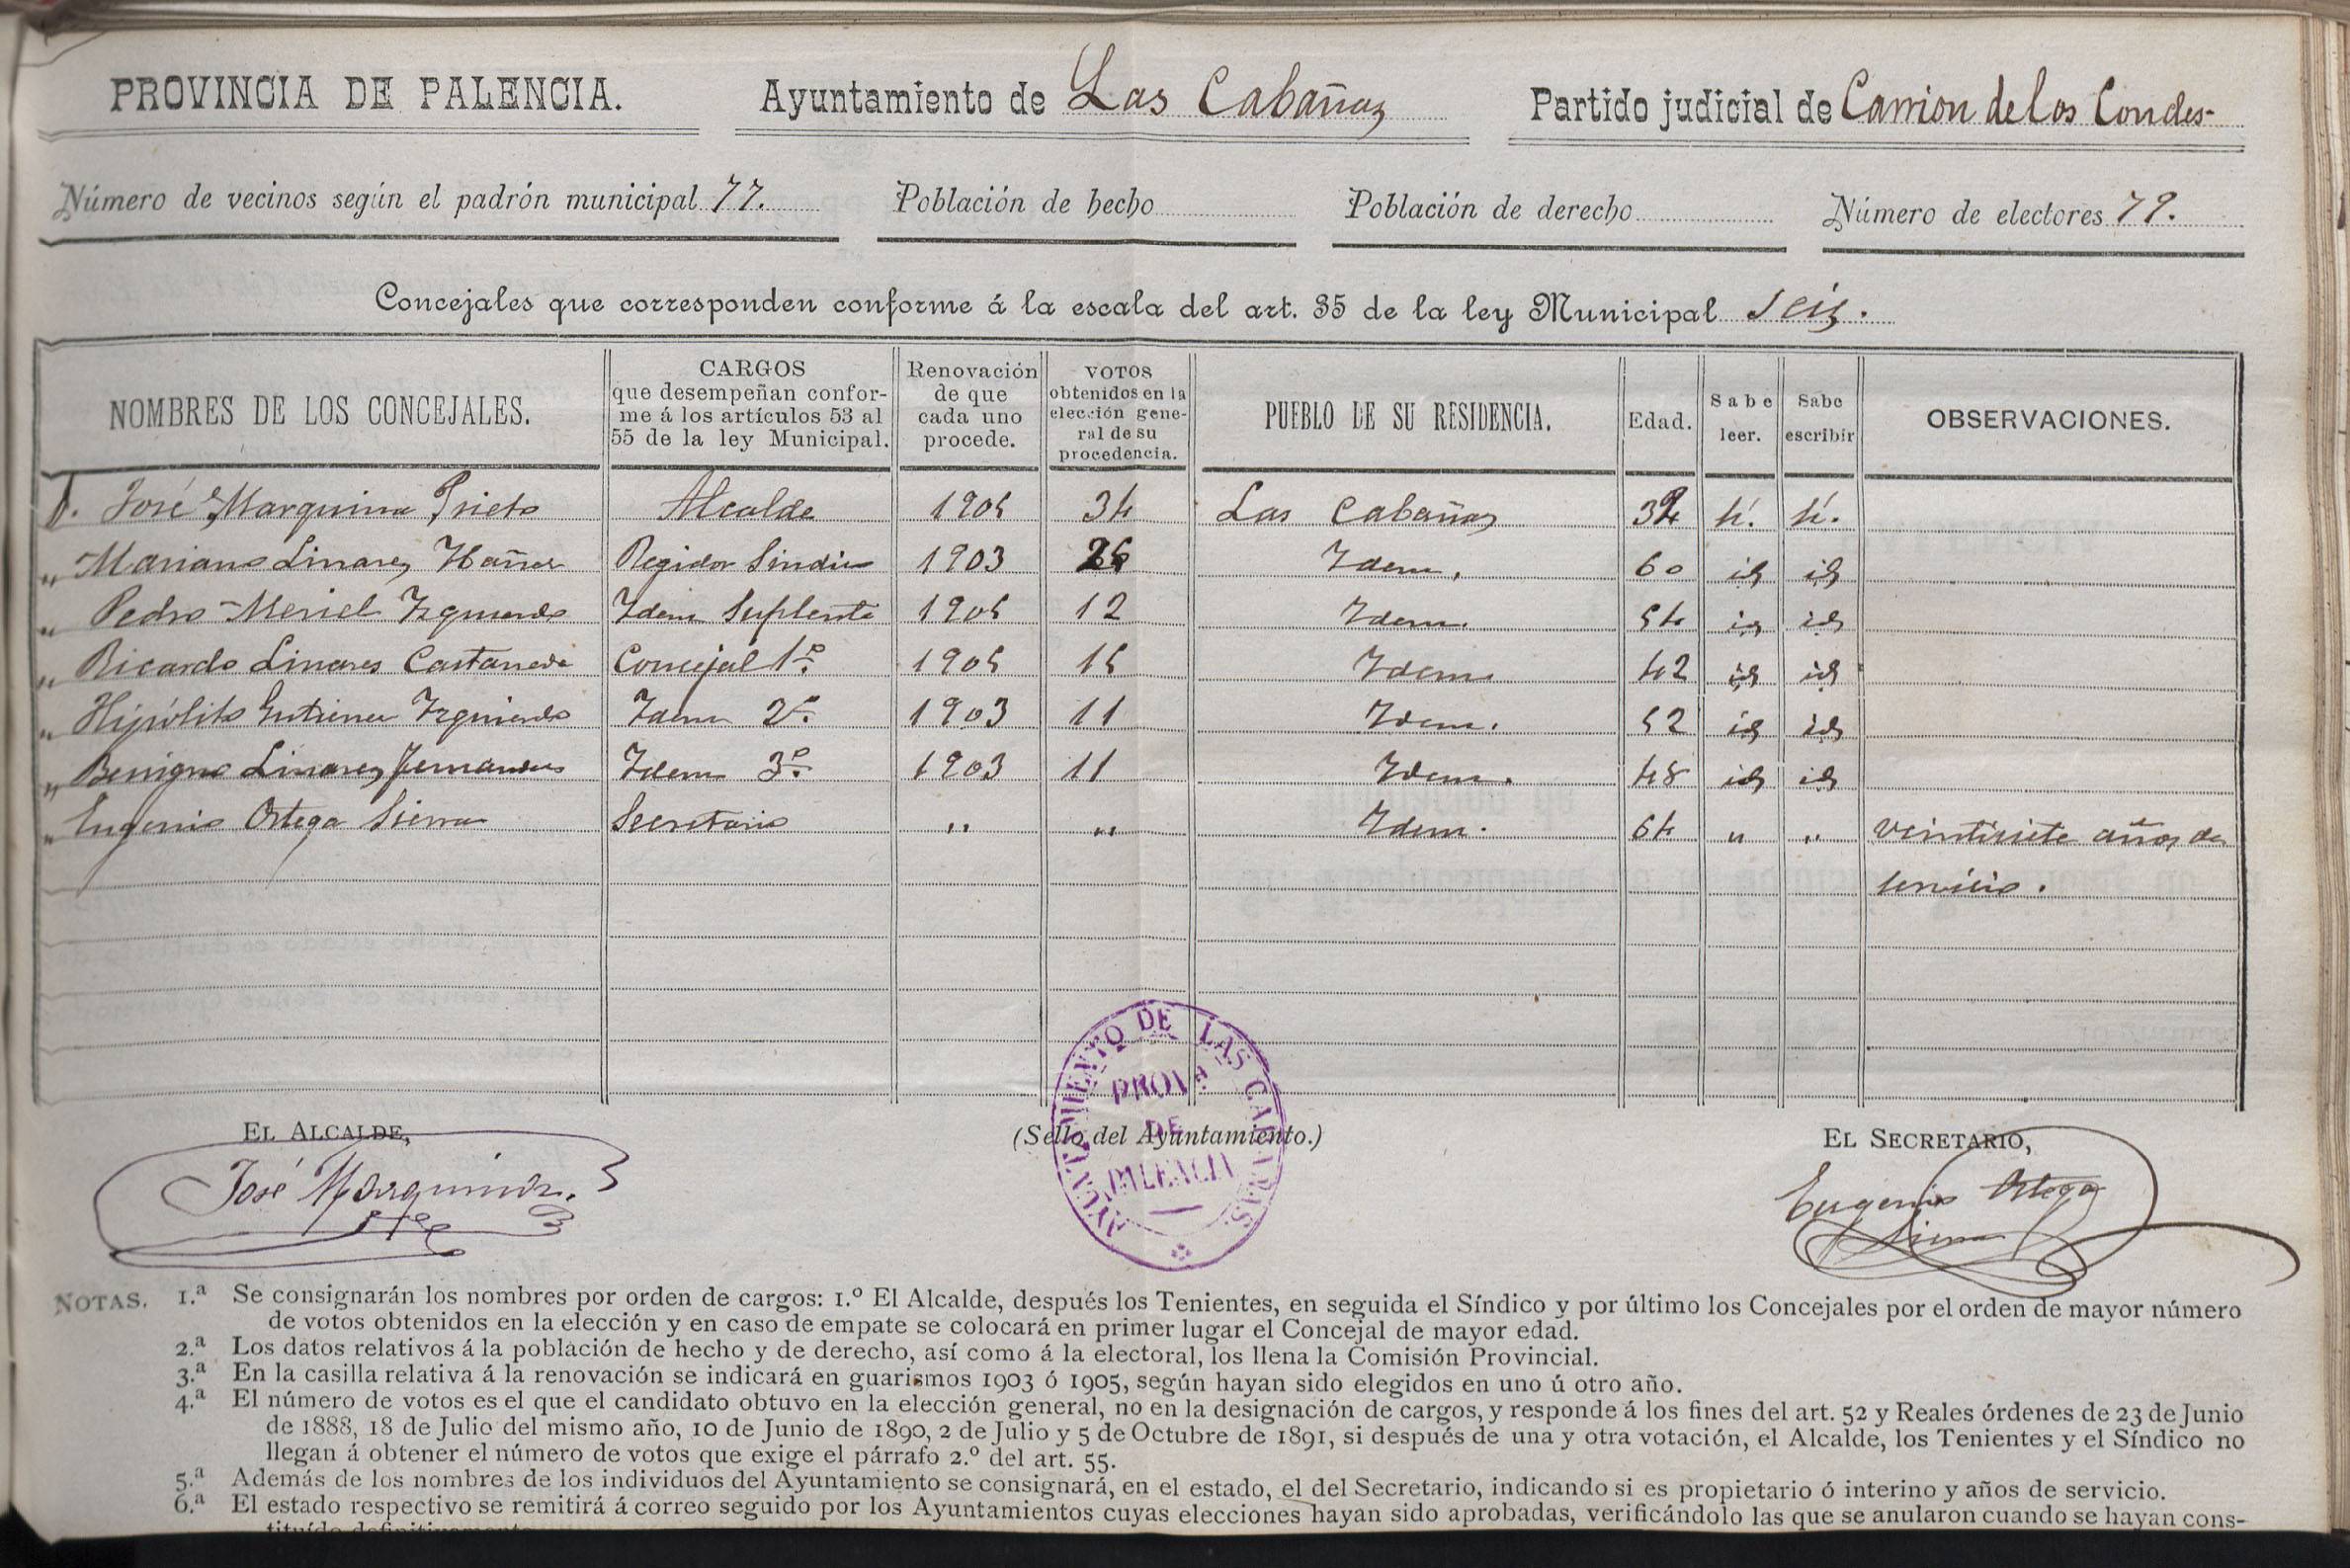 PROVINCIA DE PALENCIA. Ayuntamiento de Las Cabañas Partido judicial de Carrion de los Condes-
Número de vecinos según el padrón municipal 77. Población de hecho Población de derecho Número de electores 79.
Concejales que corresponden conforme á la escala del art. 35 de la ley Municipal Seis.
NOMBRES DE LOS CONCEJALES.
CARGOS
que desempeñan confor-
me á los artículos 53 al
55 de la ley Municipal.
Renovación
de que
cada uno
procede.
VOTOS
obtenidos en la
elección gene-
ral de su
procedencia.
PUEBLO DE SU RESIDENCIA.
Edad.
Sabe
leer.
Sabe
escribir
OBSERVACIONES.
D. José Marquina Prieto Alcalde 1905 34 Las Cabañas 32 sí. sí.
" Mariano Linares Regidor Sindico 1903 26 Idem. 60 id id
" Pedro Meriel Izquierdo Idem Suplente 1905 12 Idem. 54 id id
" Ricardo Linares Castañeda Concejal 1º. 1905 15 Idem 42 id id
" Hipólito Gutierrez Izquierdo Idem 2º. 1903 11 Idem. 52 id id
" Benigno Linares Fernandez Idem 3º. 1903 11 Idem. 48 id id
" Eugenio Ortega Sierra Secretario " " Idem. 64 " " veintisiete años de
servicio.
EL ALCALDE,
José Marquina
(Sello del Ayuntamiento.)
AYUNTAMIENTO DE LAS CABAÑAS
PROV.ª
DE
PALENCIA
EL SECRETARIO,
Eugenio Ortega
Sierra
NOTAS. 1.ª Se consignarán los nombres por orden de cargos: 1.º El Alcalde, después los Tenientes, en seguida el Síndico y por último los Concejales por el orden de mayor número
de votos obtenidos en la elección y en caso de empate se colocará en primer lugar el Concejal de mayor edad.
2.ª Los datos relativos á la población de hecho y de derecho, así como á la electoral, los llena la Comisión Provincial.
3.ª En la casilla relativa á la renovación se indicará en guarismos 1903 ó 1905, según hayan sido elegidos en uno ú otro año.
4.ª El número de votos es el que el candidato obtuvo en la elección general, no en la designación de cargos, y responde á los fines del art. 52 y Reales órdenes de 23 de Junio
de 1888, 18 de Julio del mismo año, 10 de Junio de 1890, 2 de Julio y 5 de Octubre de 1891, si después de una y otra votación, el Alcalde, los Tenientes y el Síndico no
llegan á obtener el número de votos que exige el párrafo 2.º del art. 55.
5.ª Además de los nombres de los individuos del Ayuntamiento se consignará, en el estado, el del Secretario, indicando si es propietario ó interino y años de servicio.
6.ª El estado respectivo se remitirá á correo seguido por los Ayuntamientos cuyas elecciones hayan sido aprobadas, verificándolo las que se anularon cuando se hayan cons-
tituído definitivamente.